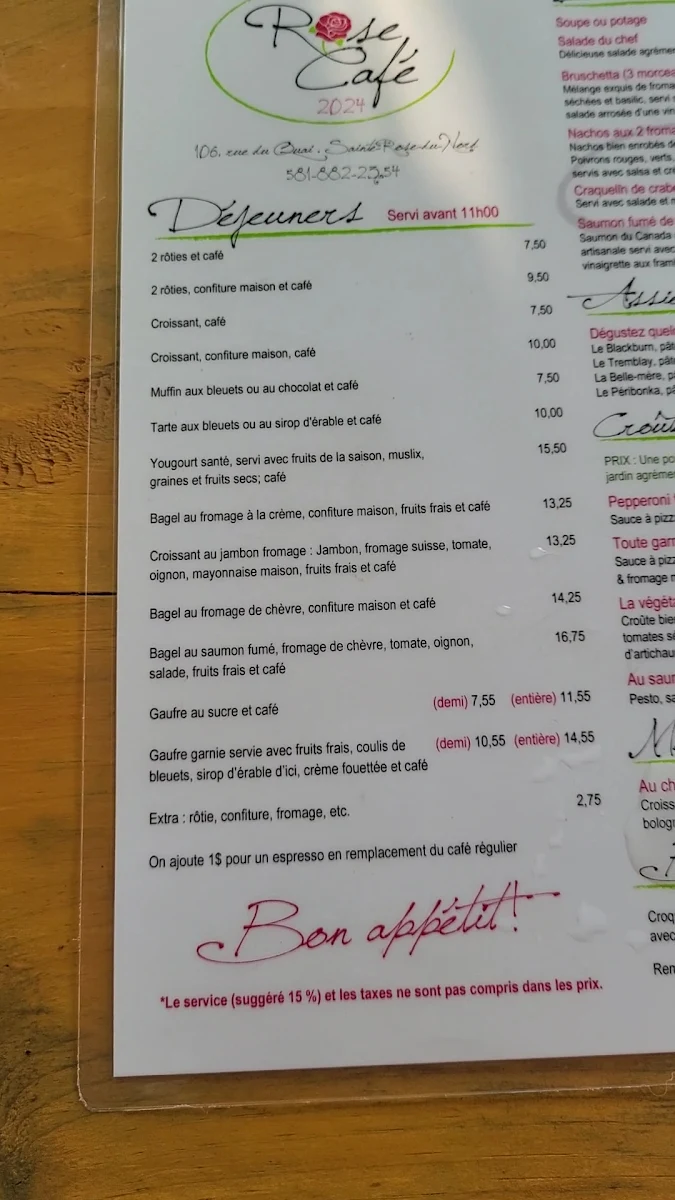 Rose
Café
2024
106, rue du Quai, Sainte-Rose-du-Nord
581-882-2554
Déjeuners Servi avant 11h00
2 rôties et café 7,50
2 rôties, confiture maison et café 9,50
Croissant, café 7,50
Croissant, confiture maison, café 10,00
Muffin aux bleuets ou au chocolat et café 7,50
Tarte aux bleuets ou au sirop d'érable et café 10,00
Yougourt santé, servi avec fruits de la saison, muslix, 15,50
graines et fruits secs; café
Bagel au fromage à la crème, confiture maison, fruits frais et café 13,25
Croissant au jambon fromage : Jambon, fromage suisse, tomate, 13,25
oignon, mayonnaise maison, fruits frais et café
Bagel au fromage de chèvre, confiture maison et café 14,25
Bagel au saumon fumé, fromage de chèvre, tomate, oignon, 16,75
salade, fruits frais et café
Gaufre au sucre et café (demi) 7,55 (entière) 11,55
Gaufre garnie servie avec fruits frais, coulis de (demi) 10,55 (entière) 14,55
bleuets, sirop d'érable d'ici, crème fouettée et café
Extra : rôtie, confiture, fromage, etc. 2,75
On ajoute 1$ pour un espresso en remplacement du café régulier
Bon appétit!
*Le service (suggéré 15 %) et les taxes ne sont pas compris dans les prix.
Soupe ou potage
Salade du chef
Délicieuse salade agrémen
Bruschetta (3 morcea
Mélange exquis de froma
séchées et basilic, servi
salade arrosée d'une vin
Nachos aux 2 froma
Nachos bien enrobés d
Poivrons rouges, verts,
servis avec salsa et cr
Craquelin de crab
Servi avec salade et m
Saumon fumé de
Saumon du Canada
artisanale servi avec
vinaigrette aux fram
Assie
Dégustez quel
Le Blackburn, pât
Le Tremblay, pât
La Belle-mère, p
Le Péribonka, pâ
Croût
PRIX : Une po
jardin agréme
Pepperoni
Sauce à pizz
Toute garn
Sauce à piz
& fromage m
La végét
Croûte bie
tomates sé
d'artichau
Au saum
Pesto, sa
M
Au ch
Croiss
bologn
Croq
avec
Ren